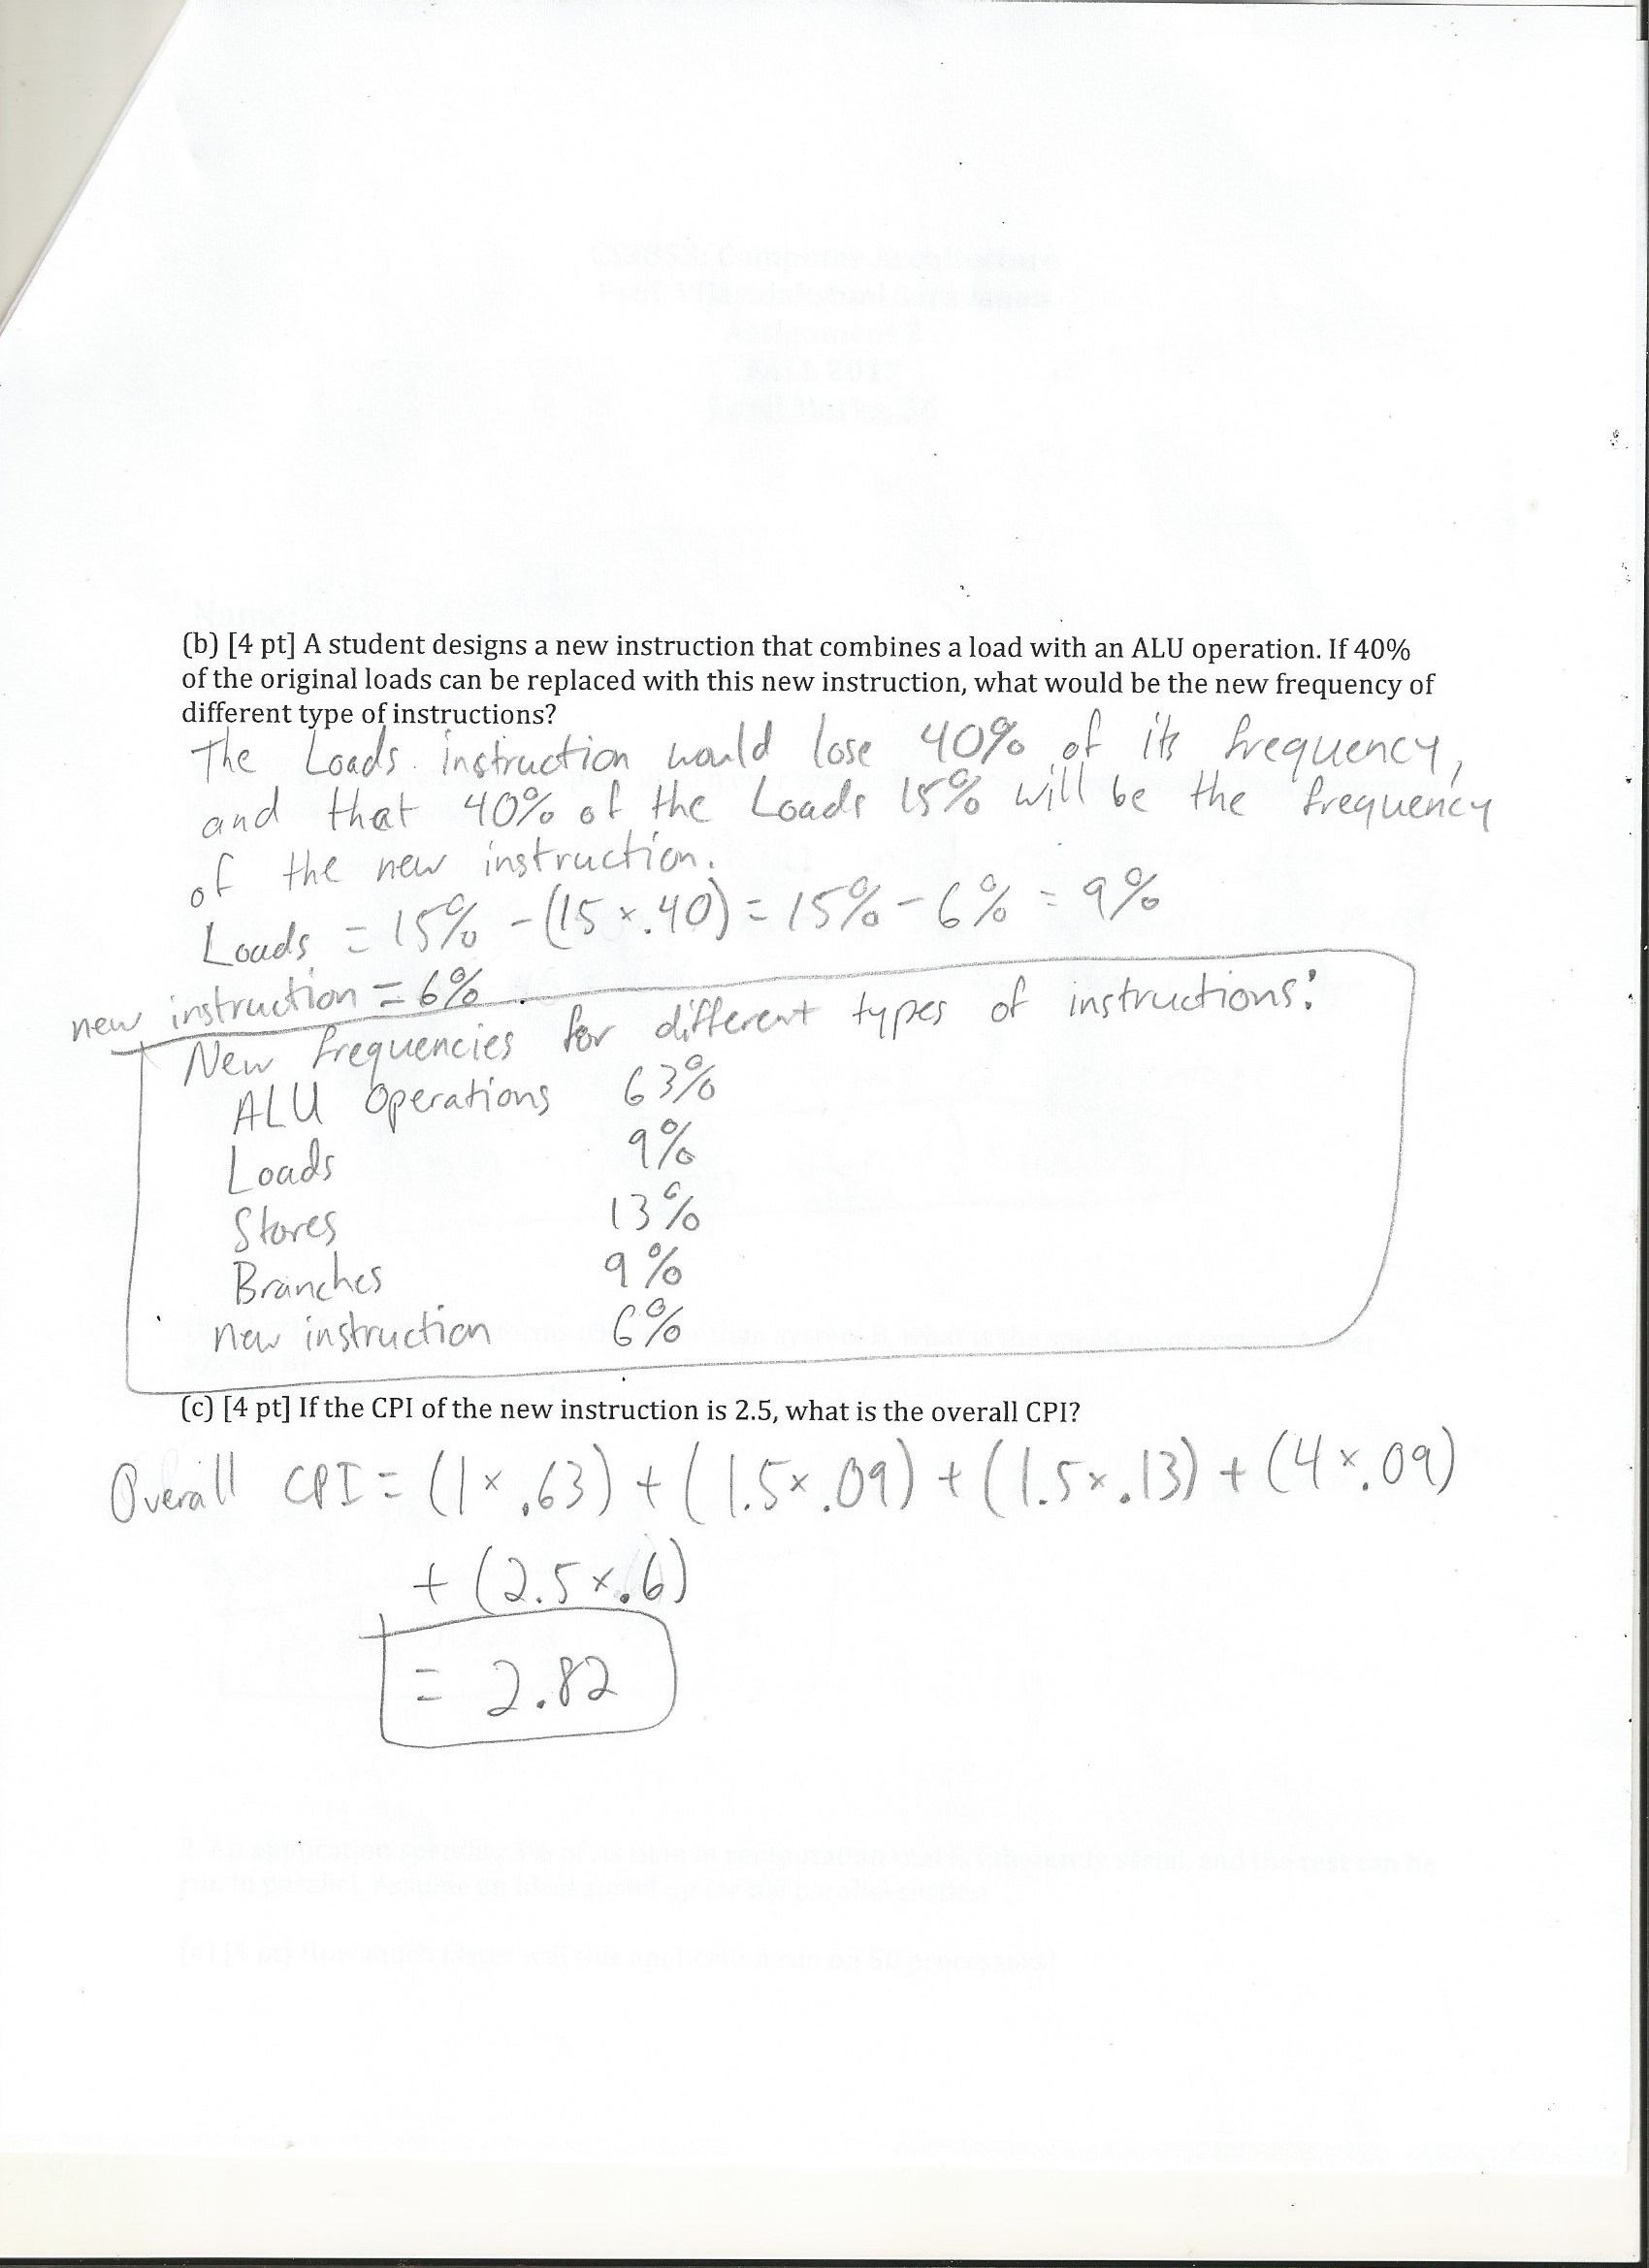 (b) [4 pt] A student designs a new instruction that combines a load with an ALU operation. If 40%
of the original loads can be replaced with this new instruction, what would be the new frequency of
different type of instructions?
The Loads instruction would lose 40% of its frequency,
and that 40% of the Loads 15% will be the frequency
of the new instruction.
Loads = 15% - (15 × .40) = 15% - 6% = 9%
new instruction = 6%
New frequencies for different types of instructions:
ALU Operations 63%
Loads 9%
Stores 13%
Branches 9%
new instruction 6%
(c) [4 pt] If the CPI of the new instruction is 2.5, what is the overall CPI?
Overall CPI = (1 × .63) + (1.5 × .09) + (1.5 × .13) + (4 × .09)
+ (2.5 × .6)
= 2.82